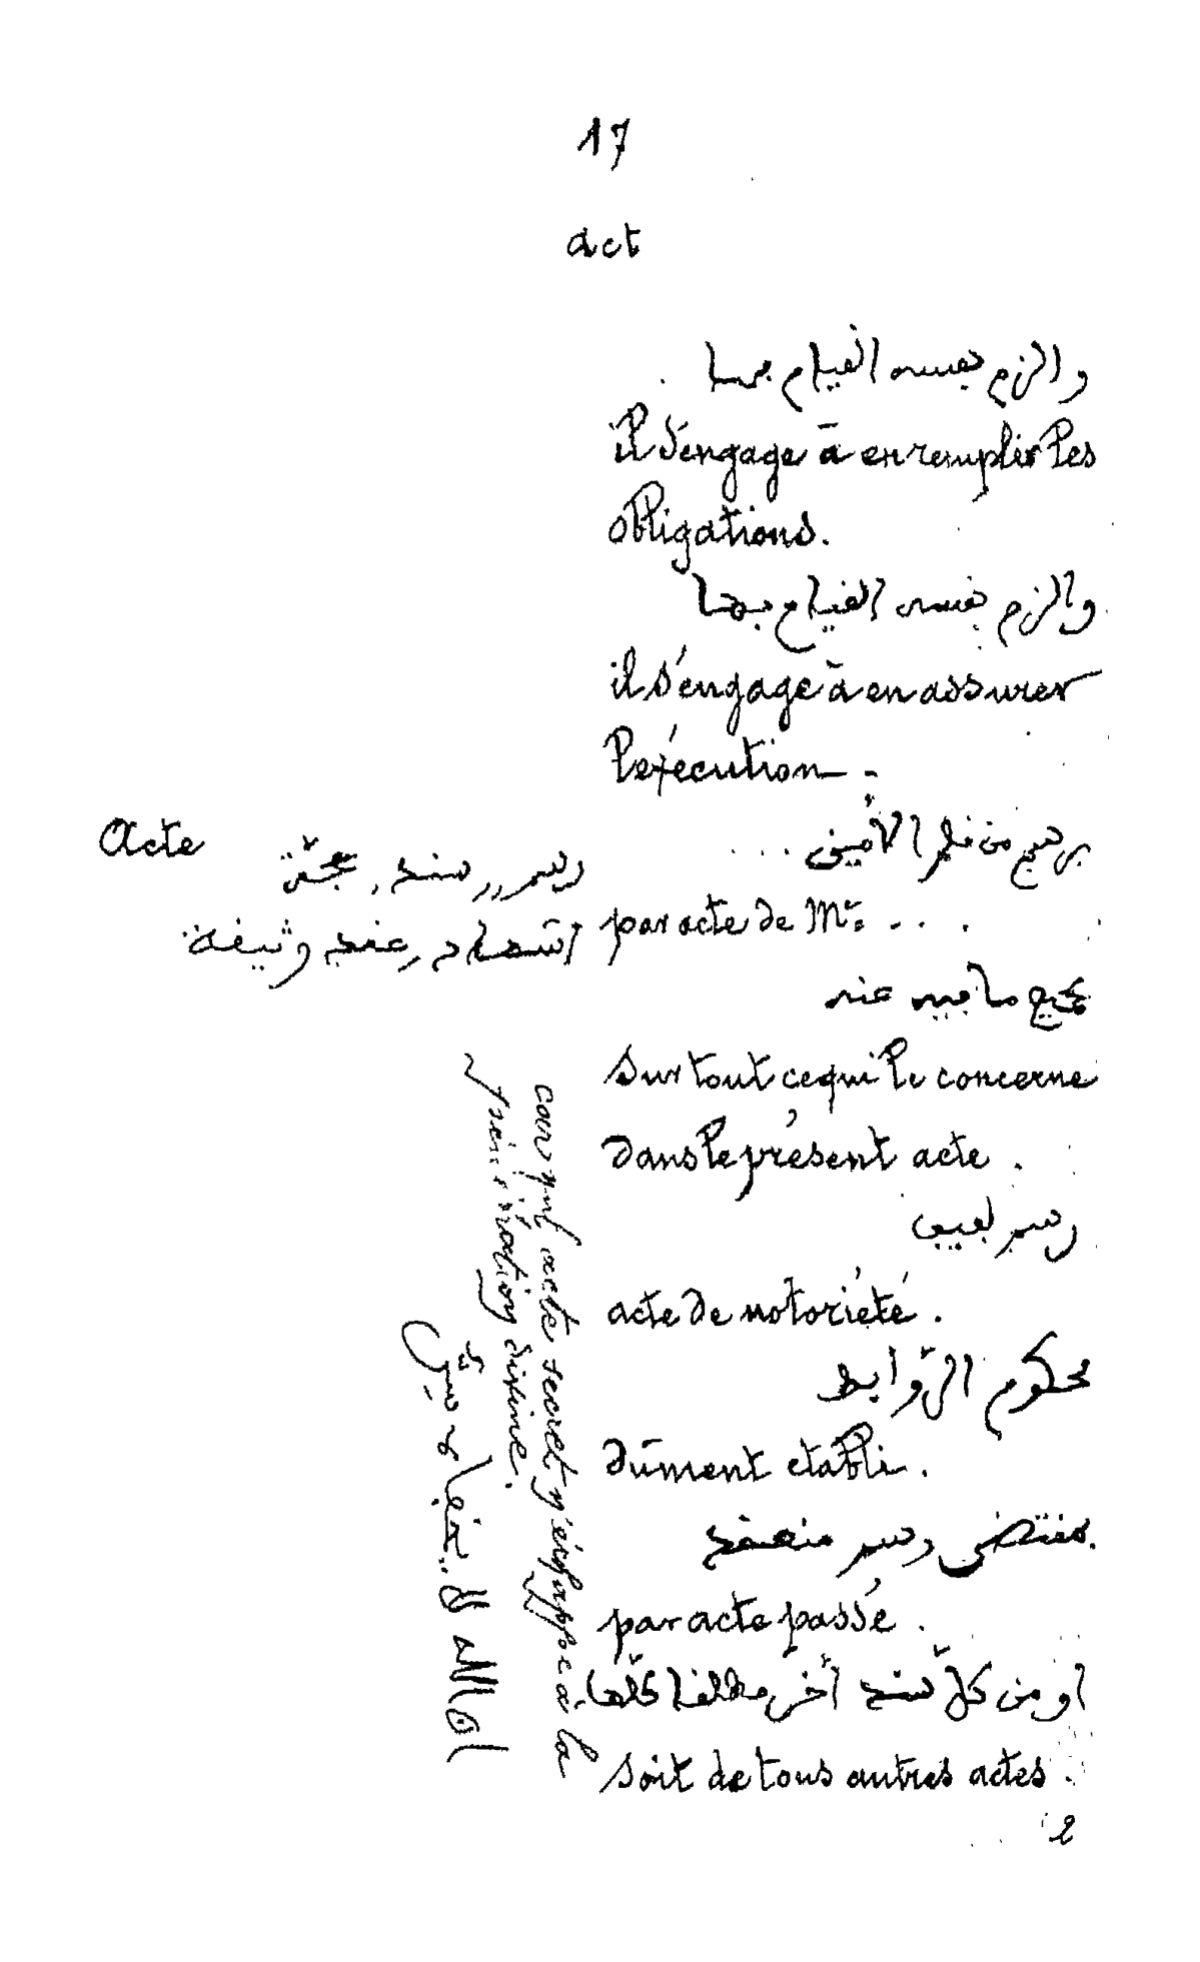 17
act
والزم نفسه القيام بها
il s'engage à en remplir les
obligations.
والزم نفسه القيام بها
il s'engage à en assurer
l'exécution.
Acte
رسم, سند, حجّة
اشهاد, عقد وثيقة
برسم من قلم الأمين ...
par acte de Me. ...
بجميع ما فيه عنه
sur tout ce qui le concerne
dans le présent acte.
رسم لفيف
acte de notoriété.
محكوم الرّوابط
dûment établi.
بمقتضى رسم منعقد
par acte passé.
او من كلّ سند آخر مطلقا كلّها
soit de tous autres actes.
2
car nul acte secret n'échappe à la
divine.
ان الله لا يخفاه سرّ